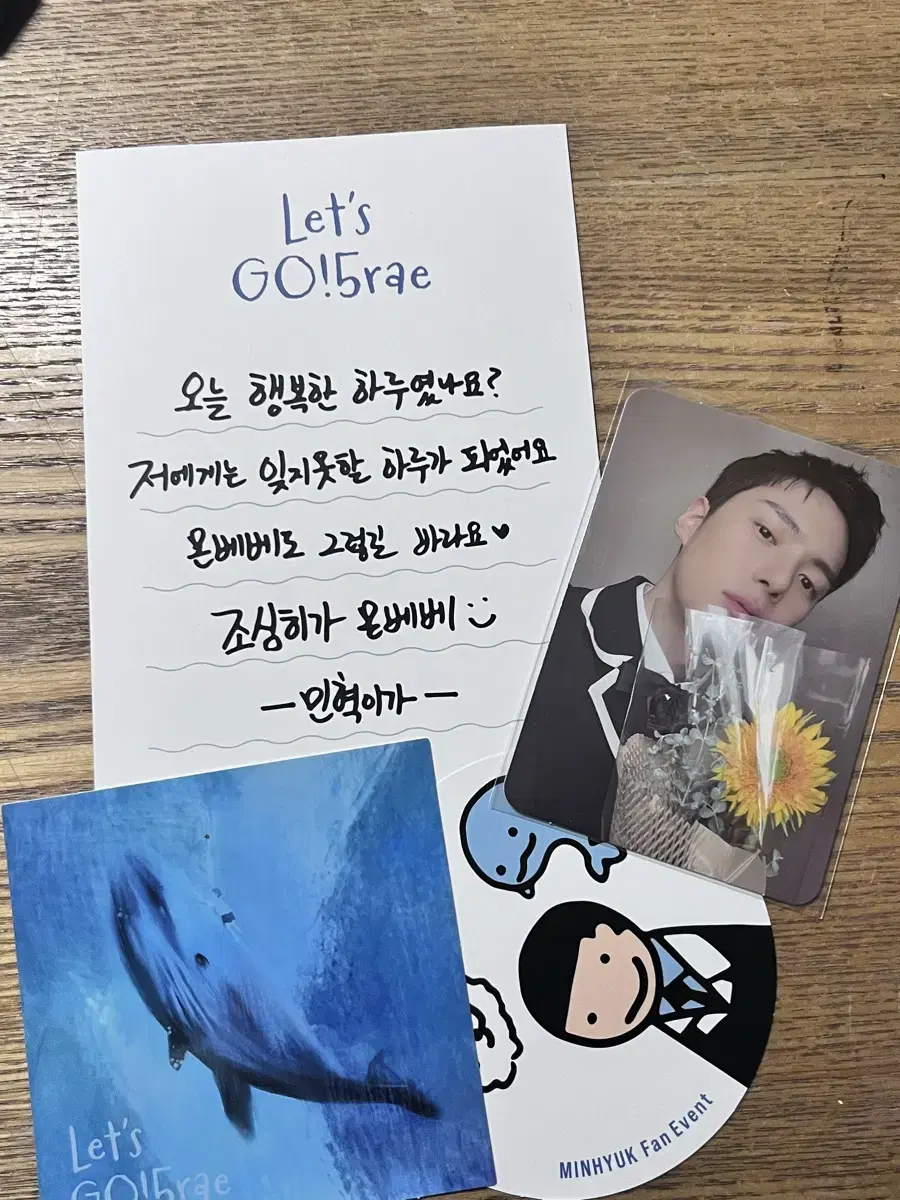 Let's
GO!5rae
오늘 행복한 하루였나요?
저에게는 잊지못할 하루가 되었어요
몬베베도 그렇길 바라요♥
조심히가 몬베베 :)
—민혁이가—
Let's
GO!5rae
MINHYUK Fan Event